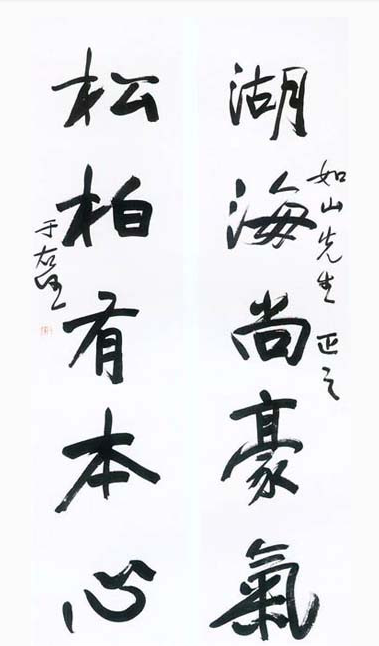 如山先生 正之
湖海尚豪氣
松柏有本心
于右任